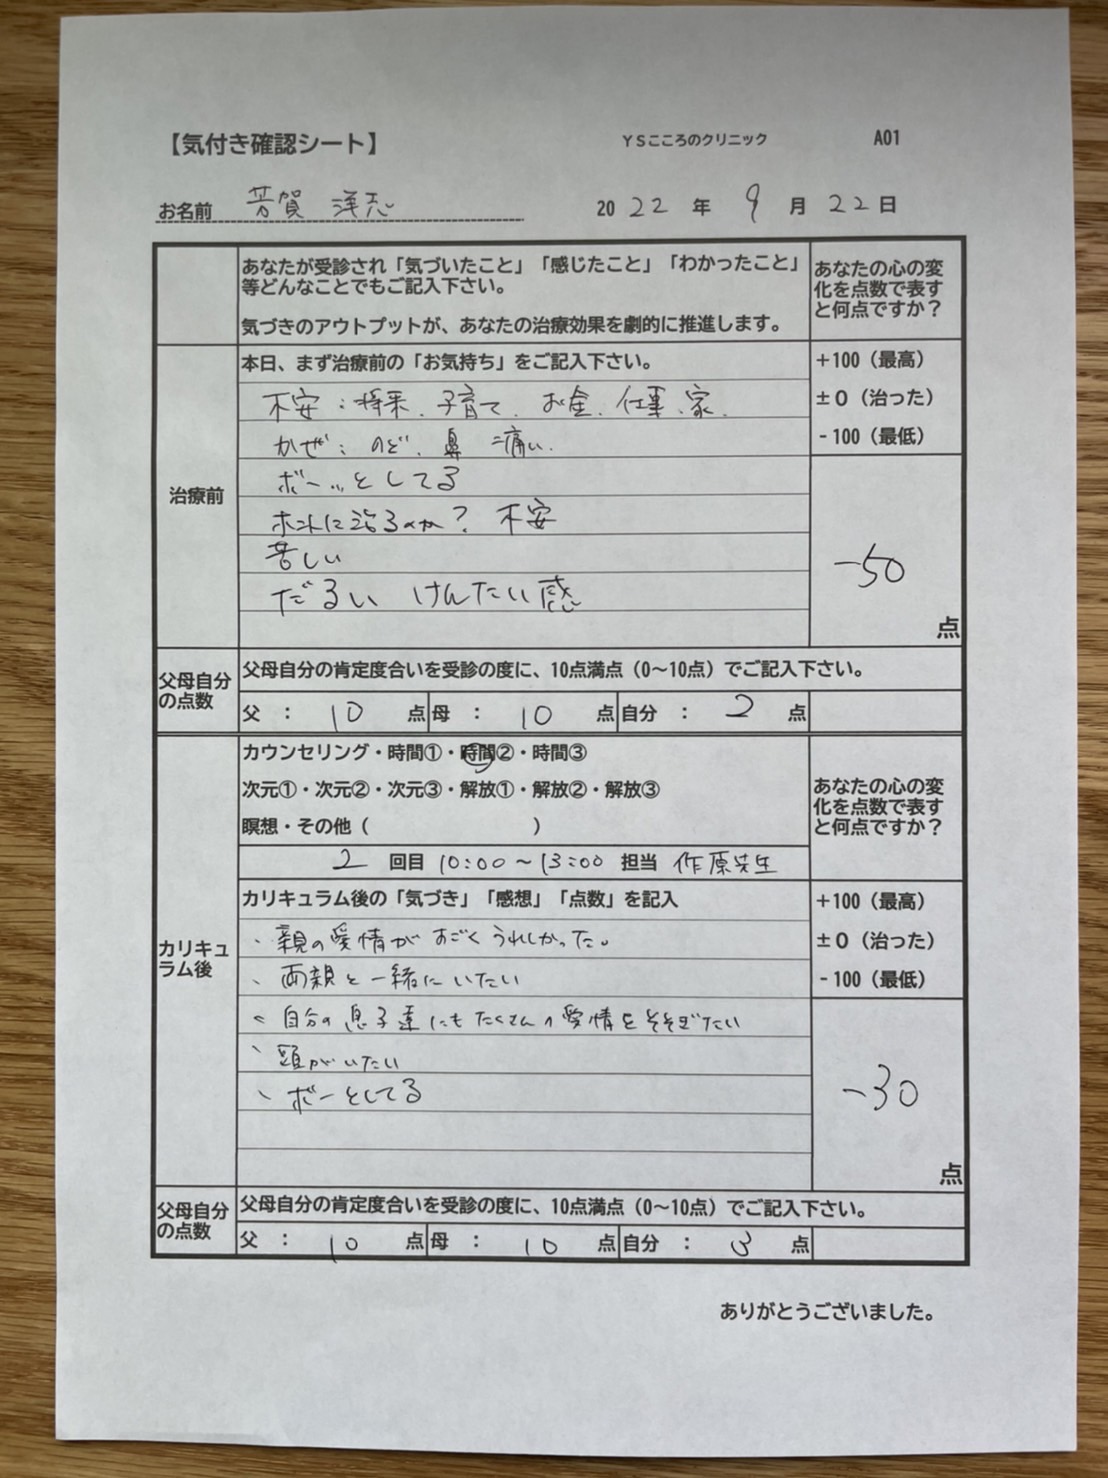 【気付き確認シート】 YSこころのクリニック A01
お名前 芳賀 洋志 2022年9月22日
あなたが受診され「気づいたこと」「感じたこと」「わかったこと」
等どんなことでもご記入下さい。
気づきのアウトプットが、あなたの治療効果を劇的に推進します。
あなたの心の変
化を点数で表す
と何点ですか?
治療前
本日、まず治療前の「お気持ち」をご記入下さい。
不安:将来、子育て、お金、仕事、家、
かぜ:のど、鼻 痛い、
ボーッとしてる
ホントに治るのか? 不安
苦しい
だるい けんたい感
+100(最高)
±0(治った)
-100(最低)
-50
点
父母自分
の点数
父母自分の肯定度合いを受診の度に、10点満点(0~10点)でご記入下さい。
父 : 10 点 母 : 10 点 自分 : 2 点
カウンセリング・時間①・時間②・時間③
次元①・次元②・次元③・解放①・解放②・解放③
瞑想・その他( )
2 回目 10:00~13:00 担当 作原先生
あなたの心の変
化を点数で表す
と何点ですか?
カリキュ
ラム後
カリキュラム後の「気づき」「感想」「点数」を記入
、親の愛情がすごくうれしかった。
、両親と一緒にいたい
、自分の息子達にもたくさんの愛情をそそぎたい
、頭がいたい
、ボーとしてる
+100(最高)
±0(治った)
-100(最低)
-30
点
父母自分
の点数
父母自分の肯定度合いを受診の度に、10点満点(0~10点)でご記入下さい。
父 : 10 点 母 : 10 点 自分 : 3 点
ありがとうございました。